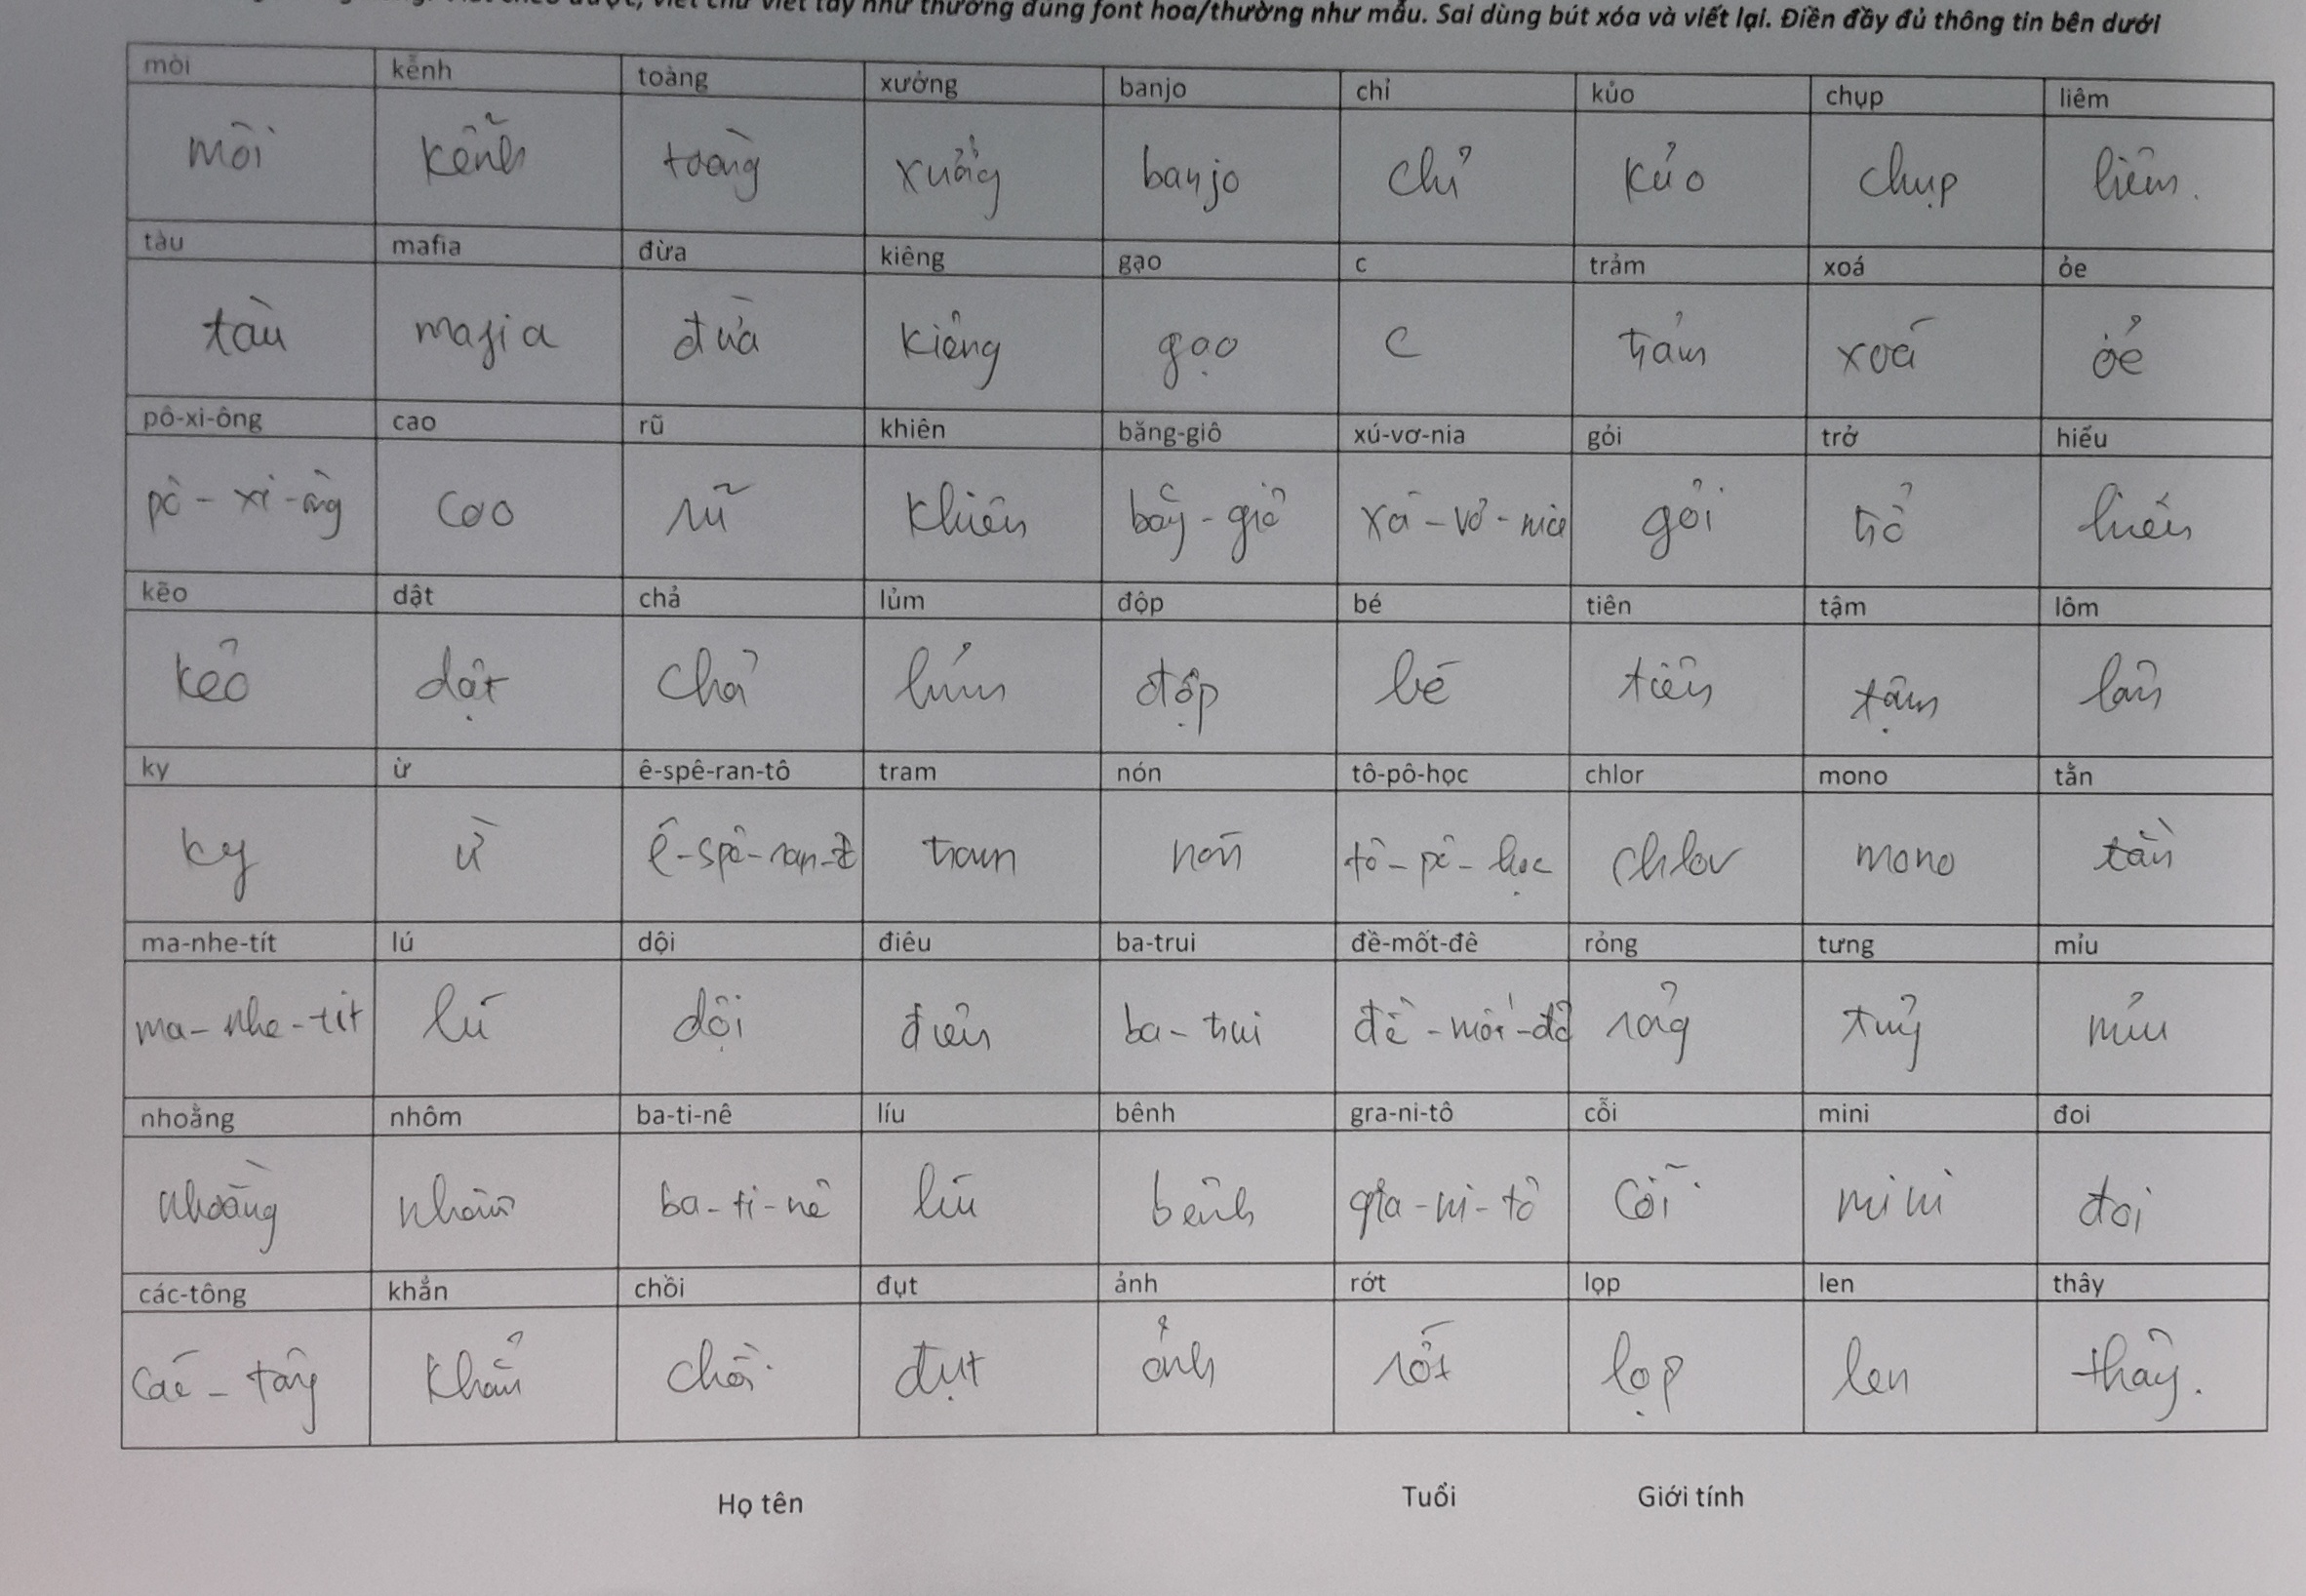 viết chữ viết tay như thường dùng font hoa/thường như mẫu. Sai dùng bút xóa và viết lại. Điền đầy đủ thông tin bên dưới
mòi kễnh toàng xưởng banjo chỉ kủo chụp liêm
môi kễnh toàng xưởng banjo chỉ kủo chụp liêm.
tàu mafia đừa kiêng gạo c trảm xoá ỏe
tàu mafia đừa kiêng gạo c trảm xoá ỏe
pô-xi-ông cao rũ khiên băng-giô xú-vơ-nia gỏi trở hiếu
pô-xi-ông cao rũ khiên băng-giô xú-vơ-nia gỏi trở hiếu
kẽo dật chả lủm độp bé tiên tậm lôm
kẻo dật chả lủm độp bé tiên tậm lôm
ky ừ ê-spê-ran-tô tram nón tô-pô-học chlor mono tằn
ky ừ ê-spê-ran-tô tram nón tô-pô-học chlor mono tằn
ma-nhe-tít lú dội điêu ba-trui đề-mốt-đê rỏng tưng mỉu
ma-nhe-tít lú dội điêu ba-trui đề-mốt-đê rỏng tưng mỉu
nhoằng nhôm ba-ti-nê líu bênh gra-ni-tô cỗi mini đoi
nhoằng nhôm ba-ti-nê líu bênh gra-ni-tô cỗi mini đoi
các-tông khẳn chồi đụt ảnh rớt lọp len thây
các-tông khẳn chồi đụt ảnh rớt lọp len thây.
Họ tên Tuổi Giới tính